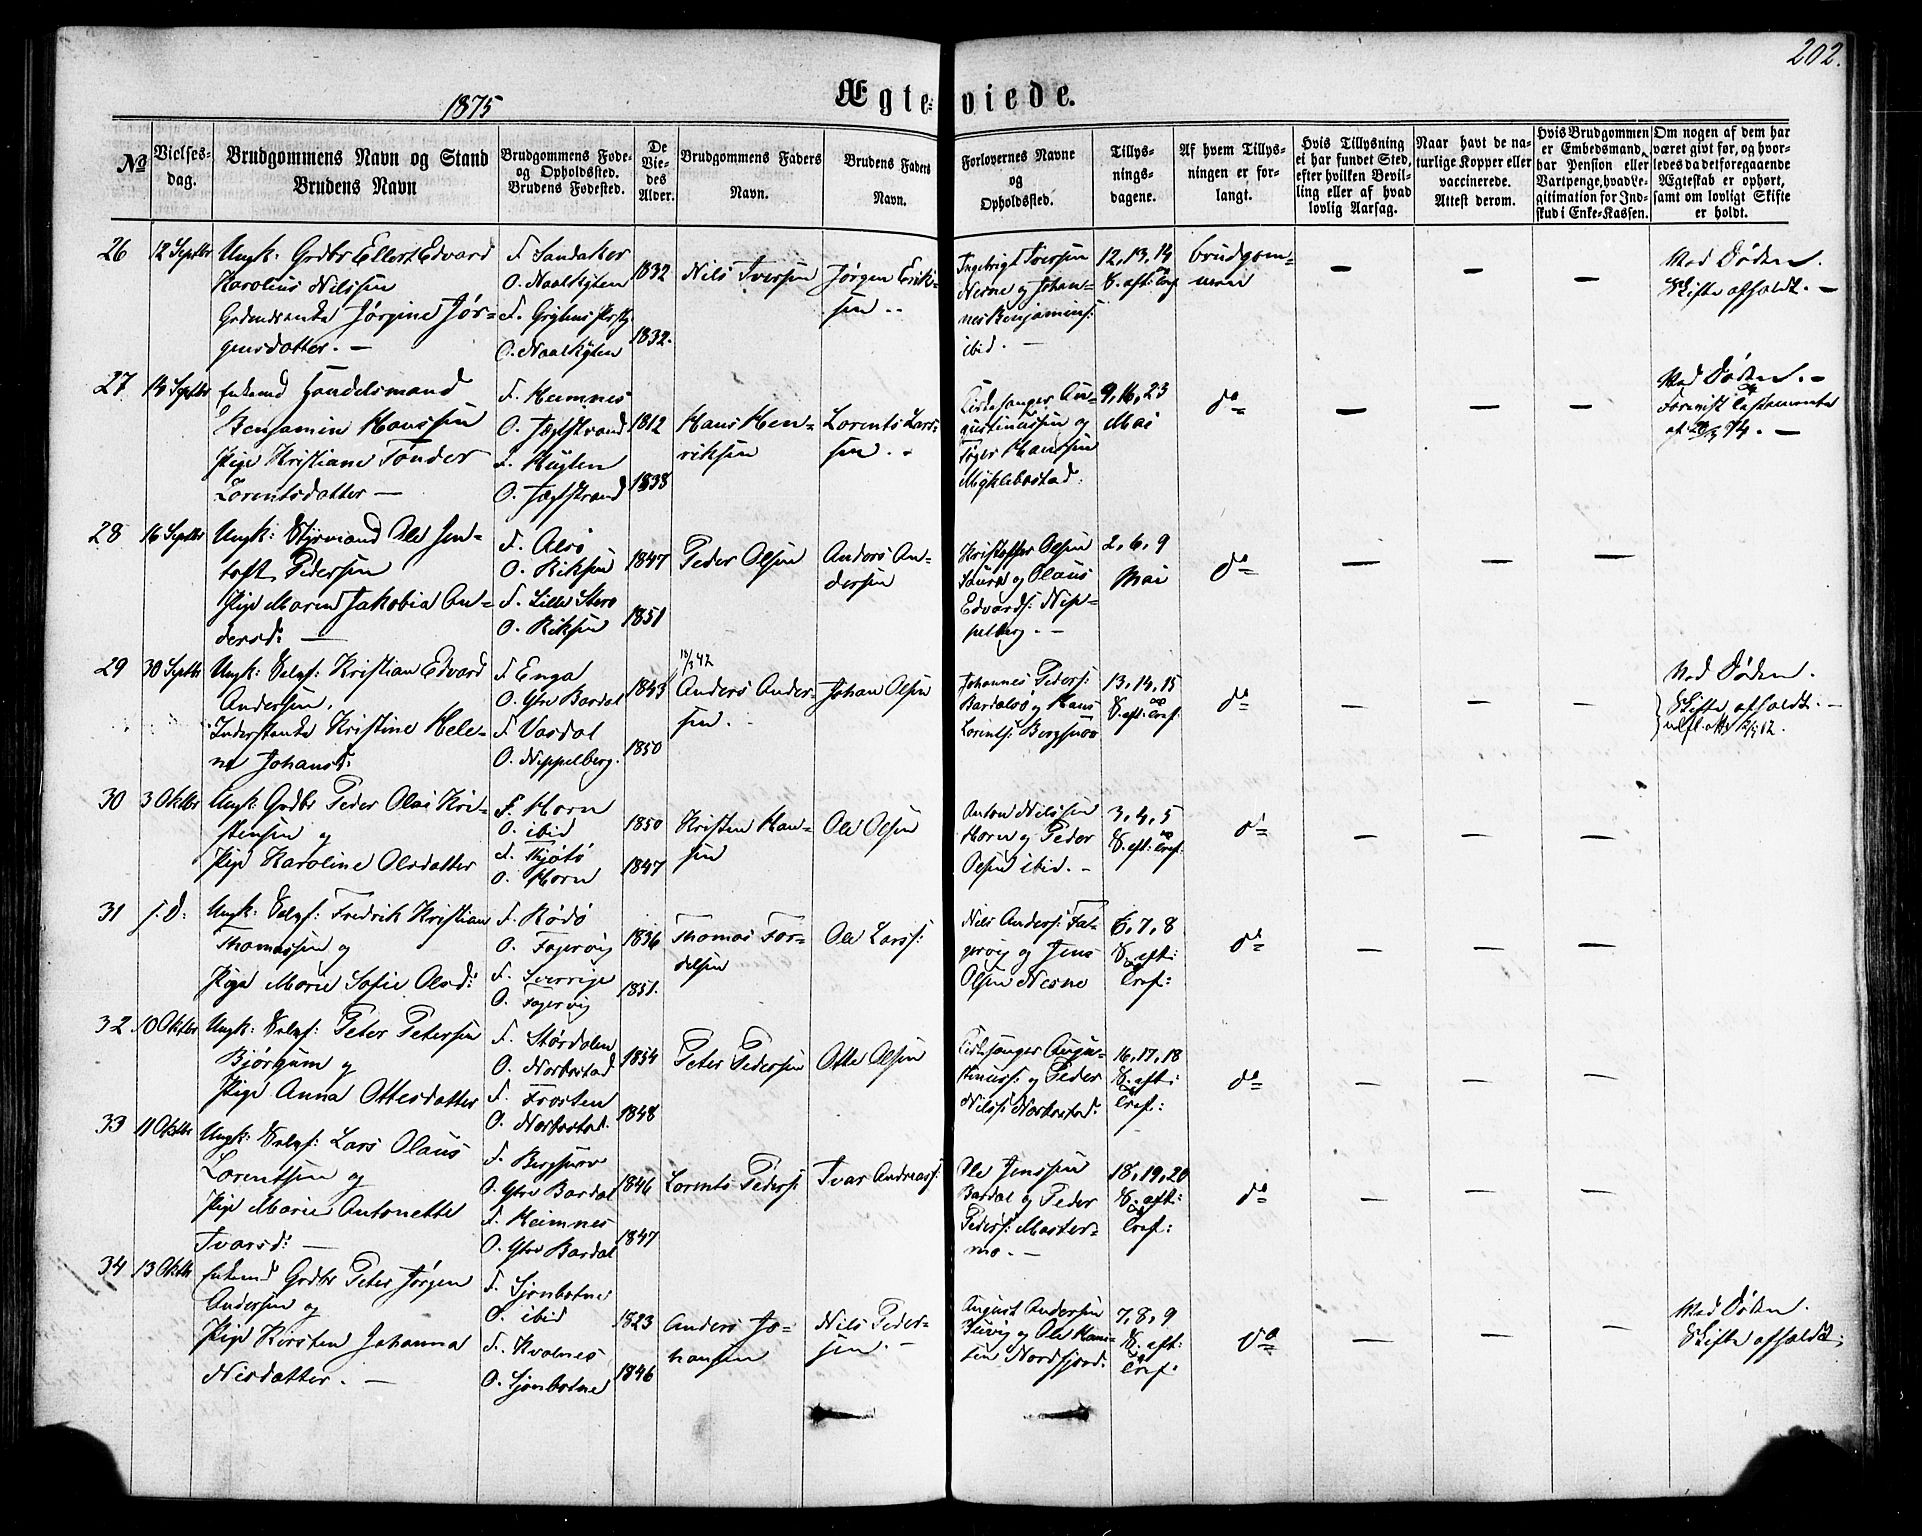 202.
1875
Ægteviede.
No
Vielses-
dag.
Brudgommens Navn og Stand
Brudens Navn
Brudgommens Føde-
og Opholdssted.
Brudens Fødested.
De
Vie-
des
Alder.
Brudgommens Faders
Navn.
Brudens Faders
Navn.
Forlovernes Navne
og
Opholdssted.
Tillys-
nings-
dagene.
Af hvem Tillys-
ningen er for-
langt.
Hvis Tillysning
ei har fundet Sted,
efter hvilken Bevil-
ling eller af hvad
lovlig Aarsag.
Naar havt de na-
turlige Kopper eller
vaccinerede.
Attest derom.
Hvis Brudgommen
er Embedsmand,
har Pension eller
Vartpenge, hvad Le-
gitimation for Ind-
skud i Enke-Kassen.
Om nogen af dem har
været givt før, og hvor-
ledes da det foregaaende
Ægteskab er ophørt,
samt om lovligt Skifte
er holdt.
26
12 Septbr
Ungk: Grdbr Ellert Edvard
Karolius Nilssen
Jørgine Jør-
gensdatter. —
F. Sandaker
O. Naalskjten
O. Naalskjten
1832
1832.
Nils Iversen
Jørgen Erik-
sen ..
Ingebrigt Iversen
Nesne og Johan-
nes Benjamins:
ibid. —
12, 13, 14
S. eft: Cref
brudgom-
men
—
—
—
Ved Døden.
Skifte afholdt. —
27
14 Septbr
Enkemd Handelsmand
Benjamin Hanssen
Pige Kristiane Tønder
Lorentsdatter —
F. Hemnes
O. Jægtstrand
F.
O. Jægtstrand
1812
1838
Hans Hen-
riksen
Lorents Lars-
sen. .
Kirkesanger Au-
gustinussen og
Hanssen
Myklebostad.
9, 16, 23
Mai
do
—
—
—
Ved Døden. —
28
16 Septbr
Ungk: Styrmand Ole Jen-
toft Pedersen
Pige Maren Jakobia An-
dersd: —
F. Alsø
O.
F. Lille
O.
1847
1851
Peder Olsen
Anders An-
dersen
Kristoffer Olsen
og Olaus
Edvards: Nip-
pelberg. —
2, 6, 9
Mai
do
—
—
—
29
30 Septbr
Ungk: Selvf: Kristian Edvard
Andersen.
Inderstenke Kristine Hele-
ne Johansd:
F. Enga
O. Ytre Bardal
F. Vasdal
O. Nippelberg.
1843
1850
Anders Ander-
sen.
Johan Olsen
Johannes Peders:
Bardalsø og Hans
Lorents:
13, 14, 15
S. eft: Cref:
do
—
—
—
Ved Døden.
Skifte afholdt. —
30
3 Oktbr
Ungk: Grdbr Peder Olai Kri-
stensen og
Pige Karoline Olsdatter
F. Horn
O. ibid
F. Tjøtø
O. Horn
1850
1847
Kristen Han-
sen
Ole Olsen
Anton Nilssen
Horn og Peder
Olsen ibid. —
3, 4, 5
S. eft: Cref:
do
—
—
—
31
s. D:
Ungk: Selvf: Fredrik Kristian
Thomassen og
Pige Marie Sofie Olsd:
F. Rødø
O. Fagervig
F. Sverrige
O. Fagervig
1836
1851.
Thomas Tor-
delsen
Ole Larss:
Nils Anders: Fa-
gervig og Jens
Olsen Nesne
6, 7, 8
S. eft:
Cref:
do
—
—
—
32
10 Oktbr
Ungk: Selvf: Peter Petersen
Bjørgum og
Pige Anna Ottesdatter
F. Størdalen
O. Norbostad
F. Frosten
O. Norbostad.
1854
1848
Peter Pedersen
Otte Olsen
Kirkesanger Augu-
stinuss: og Peder
Nilss: Norbostad:
16, 17, 18
S. eft:
Cref:
do
—
—
—
33
11 Oktbr
Ungk: Selvf: Lars Olaus
Lorentsen og
Pige Marie Antonette
Ivarsd: —
F.
O. Ytre Bardal
F. Hemnes
O. Ytre Bardal
1846
1847
Lorents Peders:
Ivar Andreass:
Ole Jenssen
Bardal og Peder
Peders: Master-
mo. —
18, 19, 20
S. eft:
Cref:
do
—
—
—
34
13 Oktbr
Enkemd Grdbr Peter Jørgen
Andersen og
Pige Kirsten Johanna
Nilsdatter. —
F. Sjonbotne
O. ibid
F. Kvalnes
O. Sjonbotne
1823
1846
Anders Jo-
hansen
Nils Peder-
sen. —
August Andersen
og Ole
Nordfjord:
7, 8, 9
S. eft:
Cref:
do
—
—
—
Ved Døden.
Skifte afholdt: